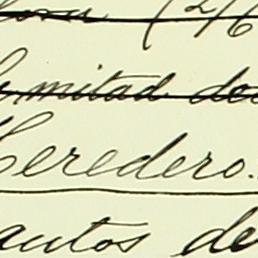 (2/6
mitad do
Heredero.
autos de